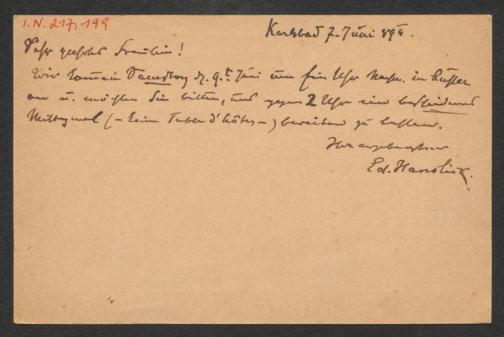 I.N. 217.199
Karlsbad 7. Juni 894.
Sehr geehrtes Fräulein!
Wir kommen Samstag d. 9. Juni um ein Uhr Nachm. in
an u. möchten Sie bitten, uns gegen 2 Uhr ein bescheidenes
Mittagmal (– keine Table d'hôte –) bereiten zu lassen.
Ihr ergebenster
Ed. Hanslick.